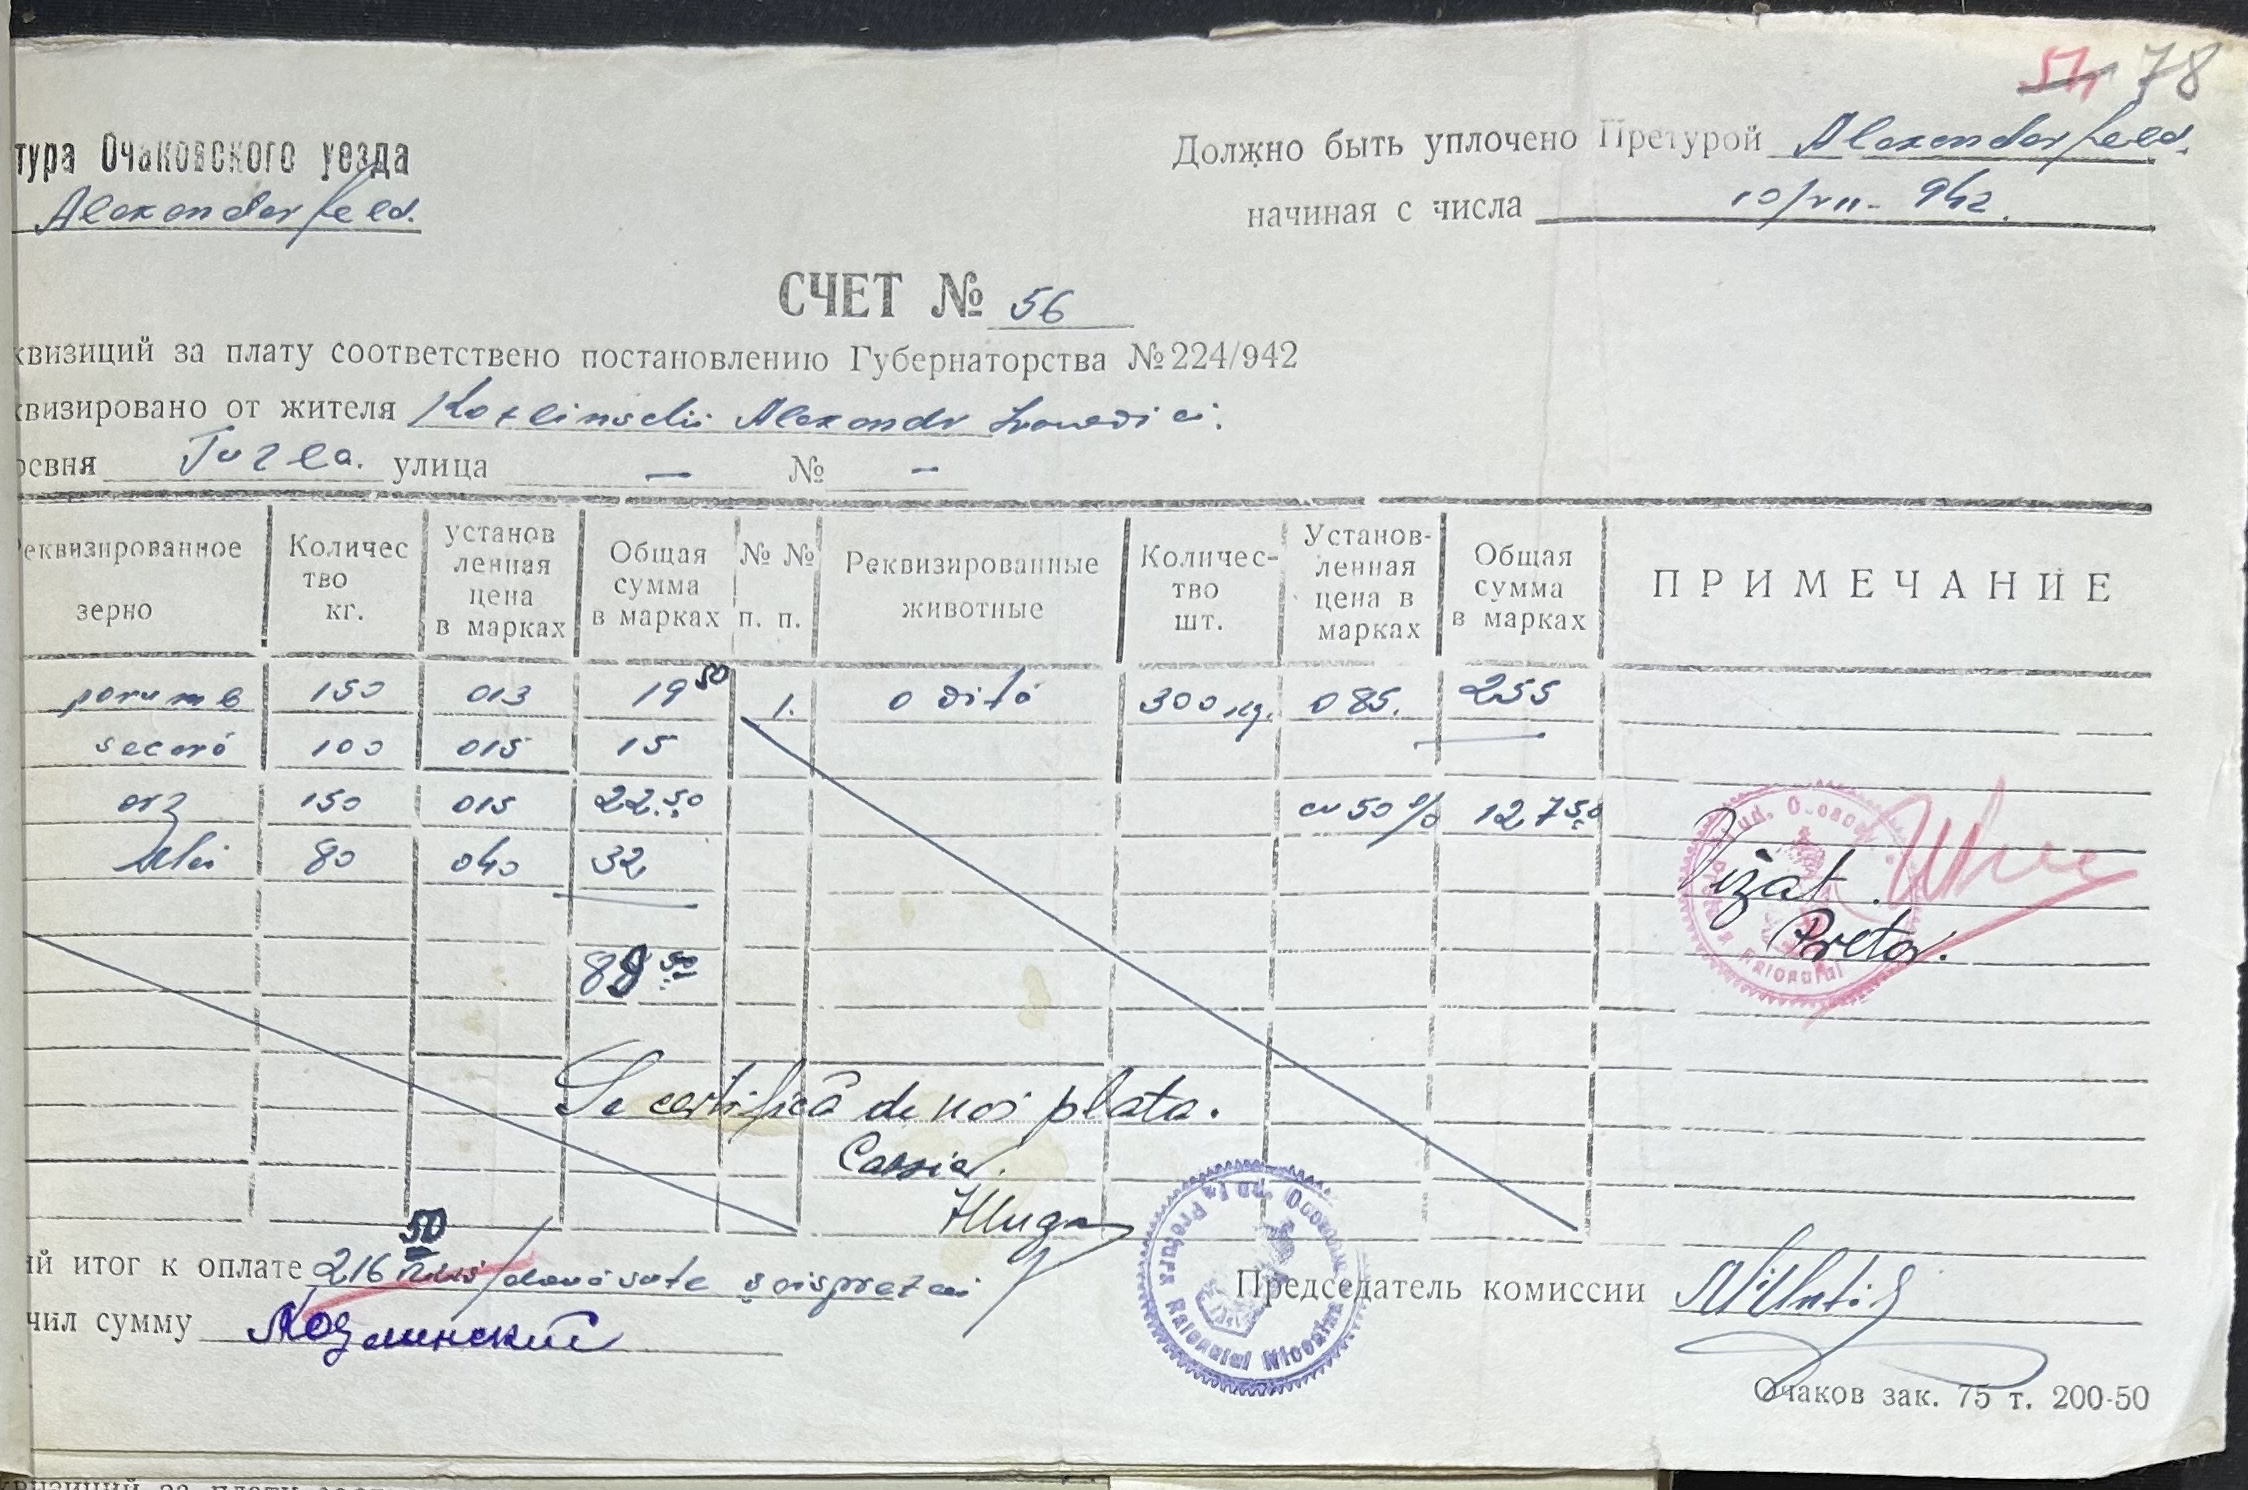 51 78
тура Очаковского уезда
Должно быть уплочено Претурой Alexanderfeld.
Alexanderfeld.
начиная с числа 10/VII - 942.
СЧЕТ № 56
квизиций за плату соответствено постановлению Губернаторства №224/942
квизировано от жителя Kozlinschii Alexandr
ревня Tuzla. улица — № —
еквизированное зерно Количес тво кг. установ ленная цена в марках Общая сумма в марках № № п. п. Реквизированные животные Количес- тво шт. Установ- ленная цена в марках Общая сумма в марках ПРИМЕЧАНИЕ
porumb 150 013 19 50 1. o vită 300 kg. 085. 255
secară 100 015 15
orz 150 015 22.50 cu 50% 127 50
ulei 80 040 32
Vizat.
Pretor.
89 50
Se certifică de noi plata.
Casier.
ий итог к оплате 216 50 două sute șaisprezeci
Председатель комиссии
чил сумму Козлинский
Pretura Raionului
Очаков зак. 75 т. 200-50
квизиций за плату